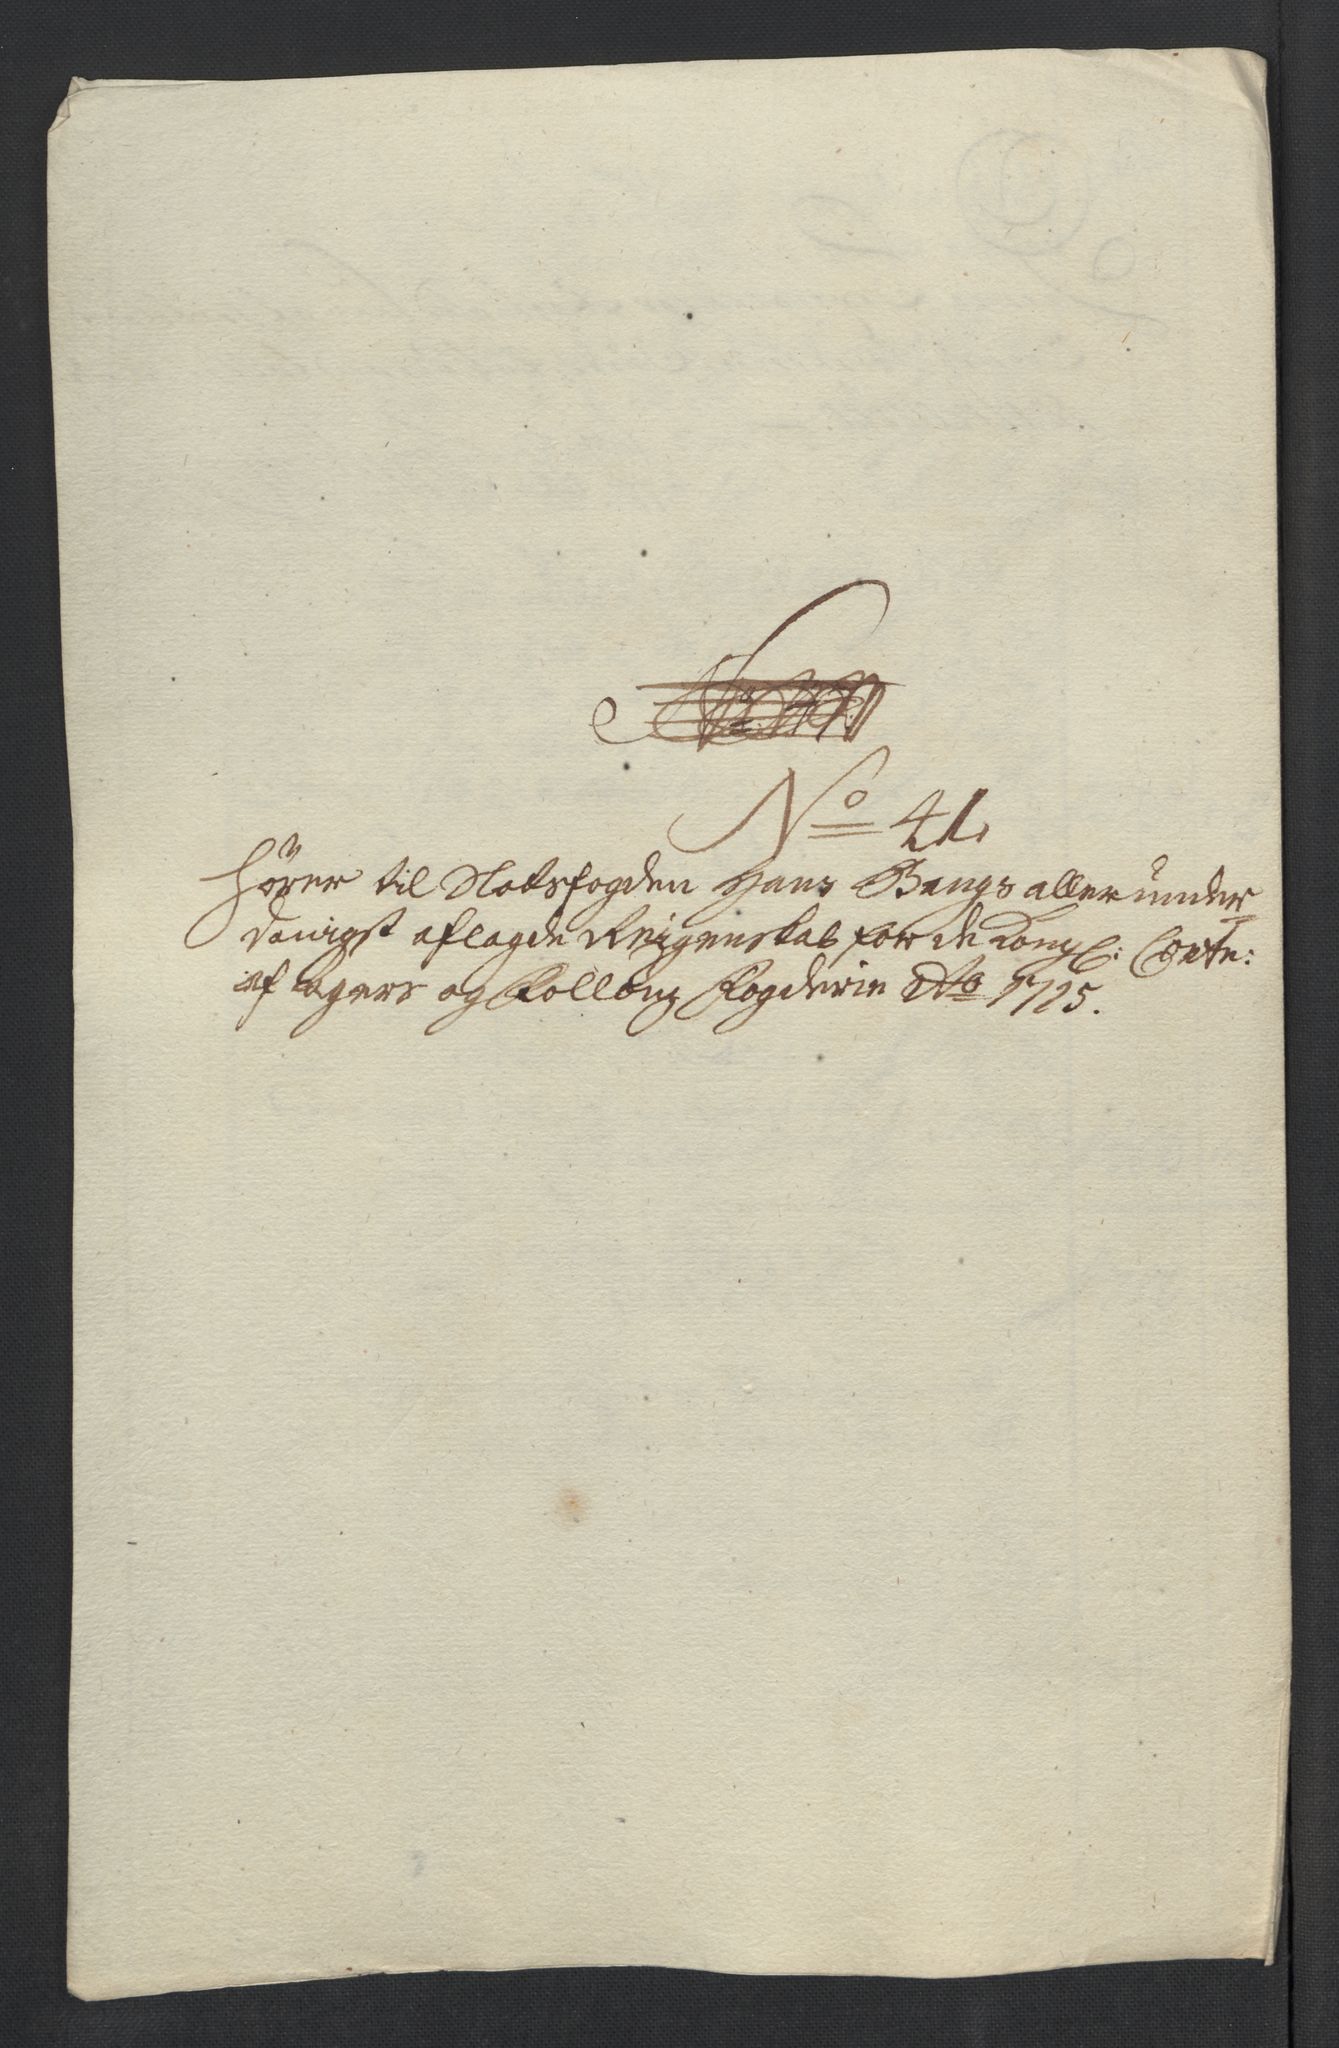 No 41.
Hörer til Slotsfogden Hans Bangs allerunder
danigst aflagde Reigenskab for de Kongl: Contr:
af Agers og Follong Fogderie Ao 1715.